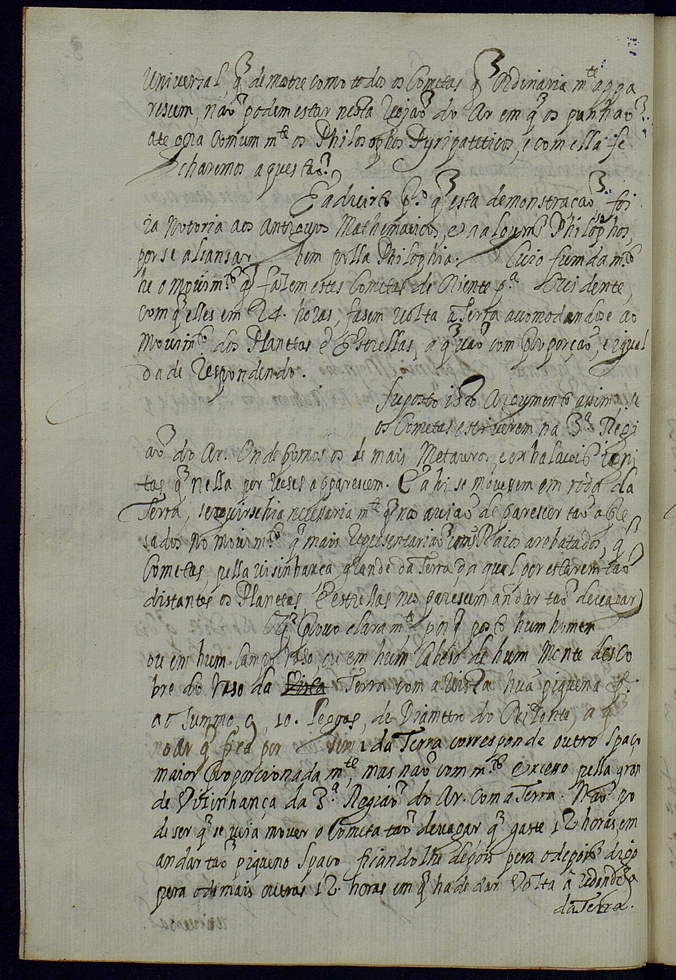 Universal, q̃ demostre como todos os Cometas q̃ Ordinaria m.te appa
resem, naõ podem estar nesta Rejaõ do Ar em q̃ os punhaõ
ate qra Comum m.te os Philosophos Pyripateticos, e com ella fe
charemos a questaõ.
E advirto p.o q̃ esta demonstraçaõ foi
ia Notoria aos Antiguos Mathematicos, e a algums Philosophos,
por se alcansar bem pella Philosophia. Cujo fundam.to
he o movim.to q̃ fazem estes Cometas de Oriente p.a Occidente,
Com q̃ elles em 24. horas, fasem volta a Terra acomodandose ao
Movim.to dos Planetas e Estrellas, a q̃ vaõ com proporçaõ, e igual
dade Respondendo.
suposto isto Argumento assim se
os Cometas estiverem na 3.a Regi
aõ do Ar. Onde pomos os de mais Metauros, e exhalacois
tas q̃ nella por veses apparesem. E ahi se movesem em roda da
Terra, seguirsehia necessaria m.te q̃ nos aviaõ de pareser taõ apre
sados no movim.to q̃ mais Representariaõ uns Raios arobatados, q̃
Cometas, pella visinhanca grande da Terra da qual por estarem taõ
distantes os Planetas, e estrellas nos paresem andar taõ devagar
q̃ Provo clara m.te porq̃ posto hum homem
ou em hum Campo raso, ou em hum Cabeso de hum Monte desco
bre do raso da Terra com a vista huã piquena p.te
ao summo, 9, 10. Legoas, de Diametro do Orisonte, a q̃
no Ar q̃ fica por sima da Terra corresponde outro spaço
maior Proporcionada m.te, mas naõ com m.to excesso pella gran
de Visinhança da 3.a Regiaõ do Ar. Com a Terra. Naõ po
de ser q̃ se veja mover o Cometa taõ devagar q̃ gaste 12 horas em
andar taõ piqueno spaço ficandolhe depois pera o depois digo
pera o de mais outras 12. horas em q̃ ha de dar Volta á redondeza
da Terra.